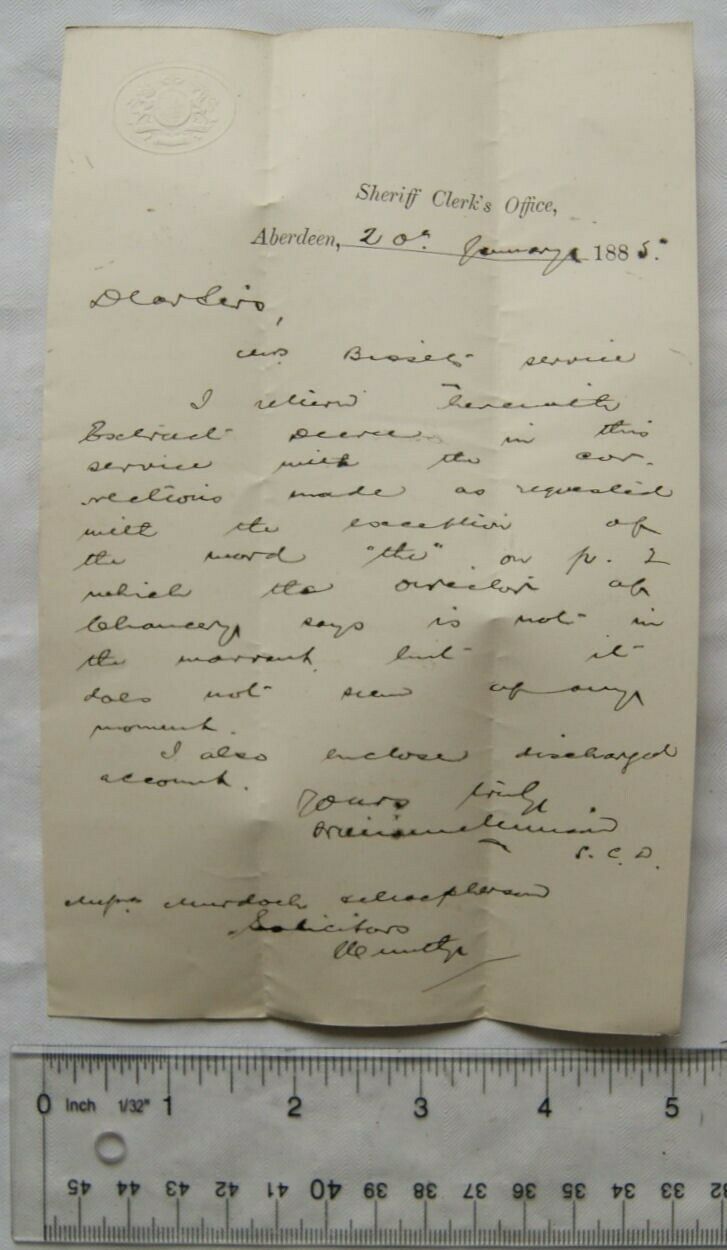 Sheriff Clerk's Office,
Aberdeen, 20th January 1885.
Dear Sirs,
Mrs. Bisset's service
I return herewith
Extract Decree in this
service with the cor-
rections made as requested
with the exception of
the word "the" on p. 2
which the Director of
Chancery says is not in
the warrant but it
does not seem of any
moment.
I also enclose discharged
account.
Yours truly
S. C. D.
Messrs Murdoch & Macpherson
Solicitors
Huntly
0 Inch 1/32" 1 2 3 4 5
45 44 43 42 41 40 39 38 37 36 35 34 33 32